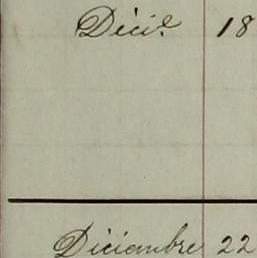 Dici.e 18
Diciembre 22